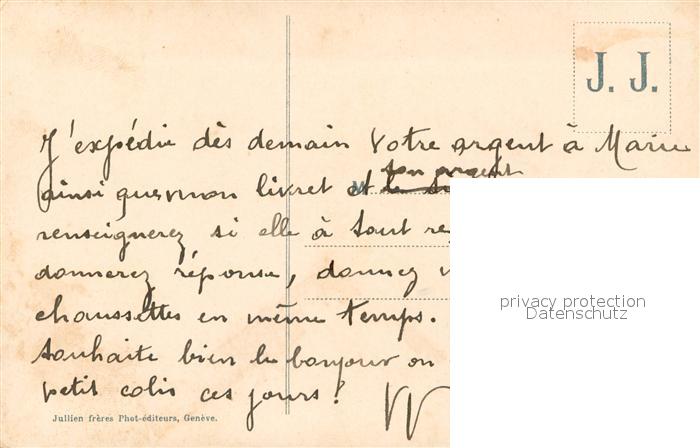 J. J.
J'expédie dès demain votre argent à Marie
son argent
ainsi que mon livret et le
renseignerez si elle à tout
donnerez réponse, donnez
chaussettes en même temps.
souhaite bien le bonjour on
petit colis ces jours!
privacy protection
Datenschutz
Jullien frères Phot-éditeurs, Genève.